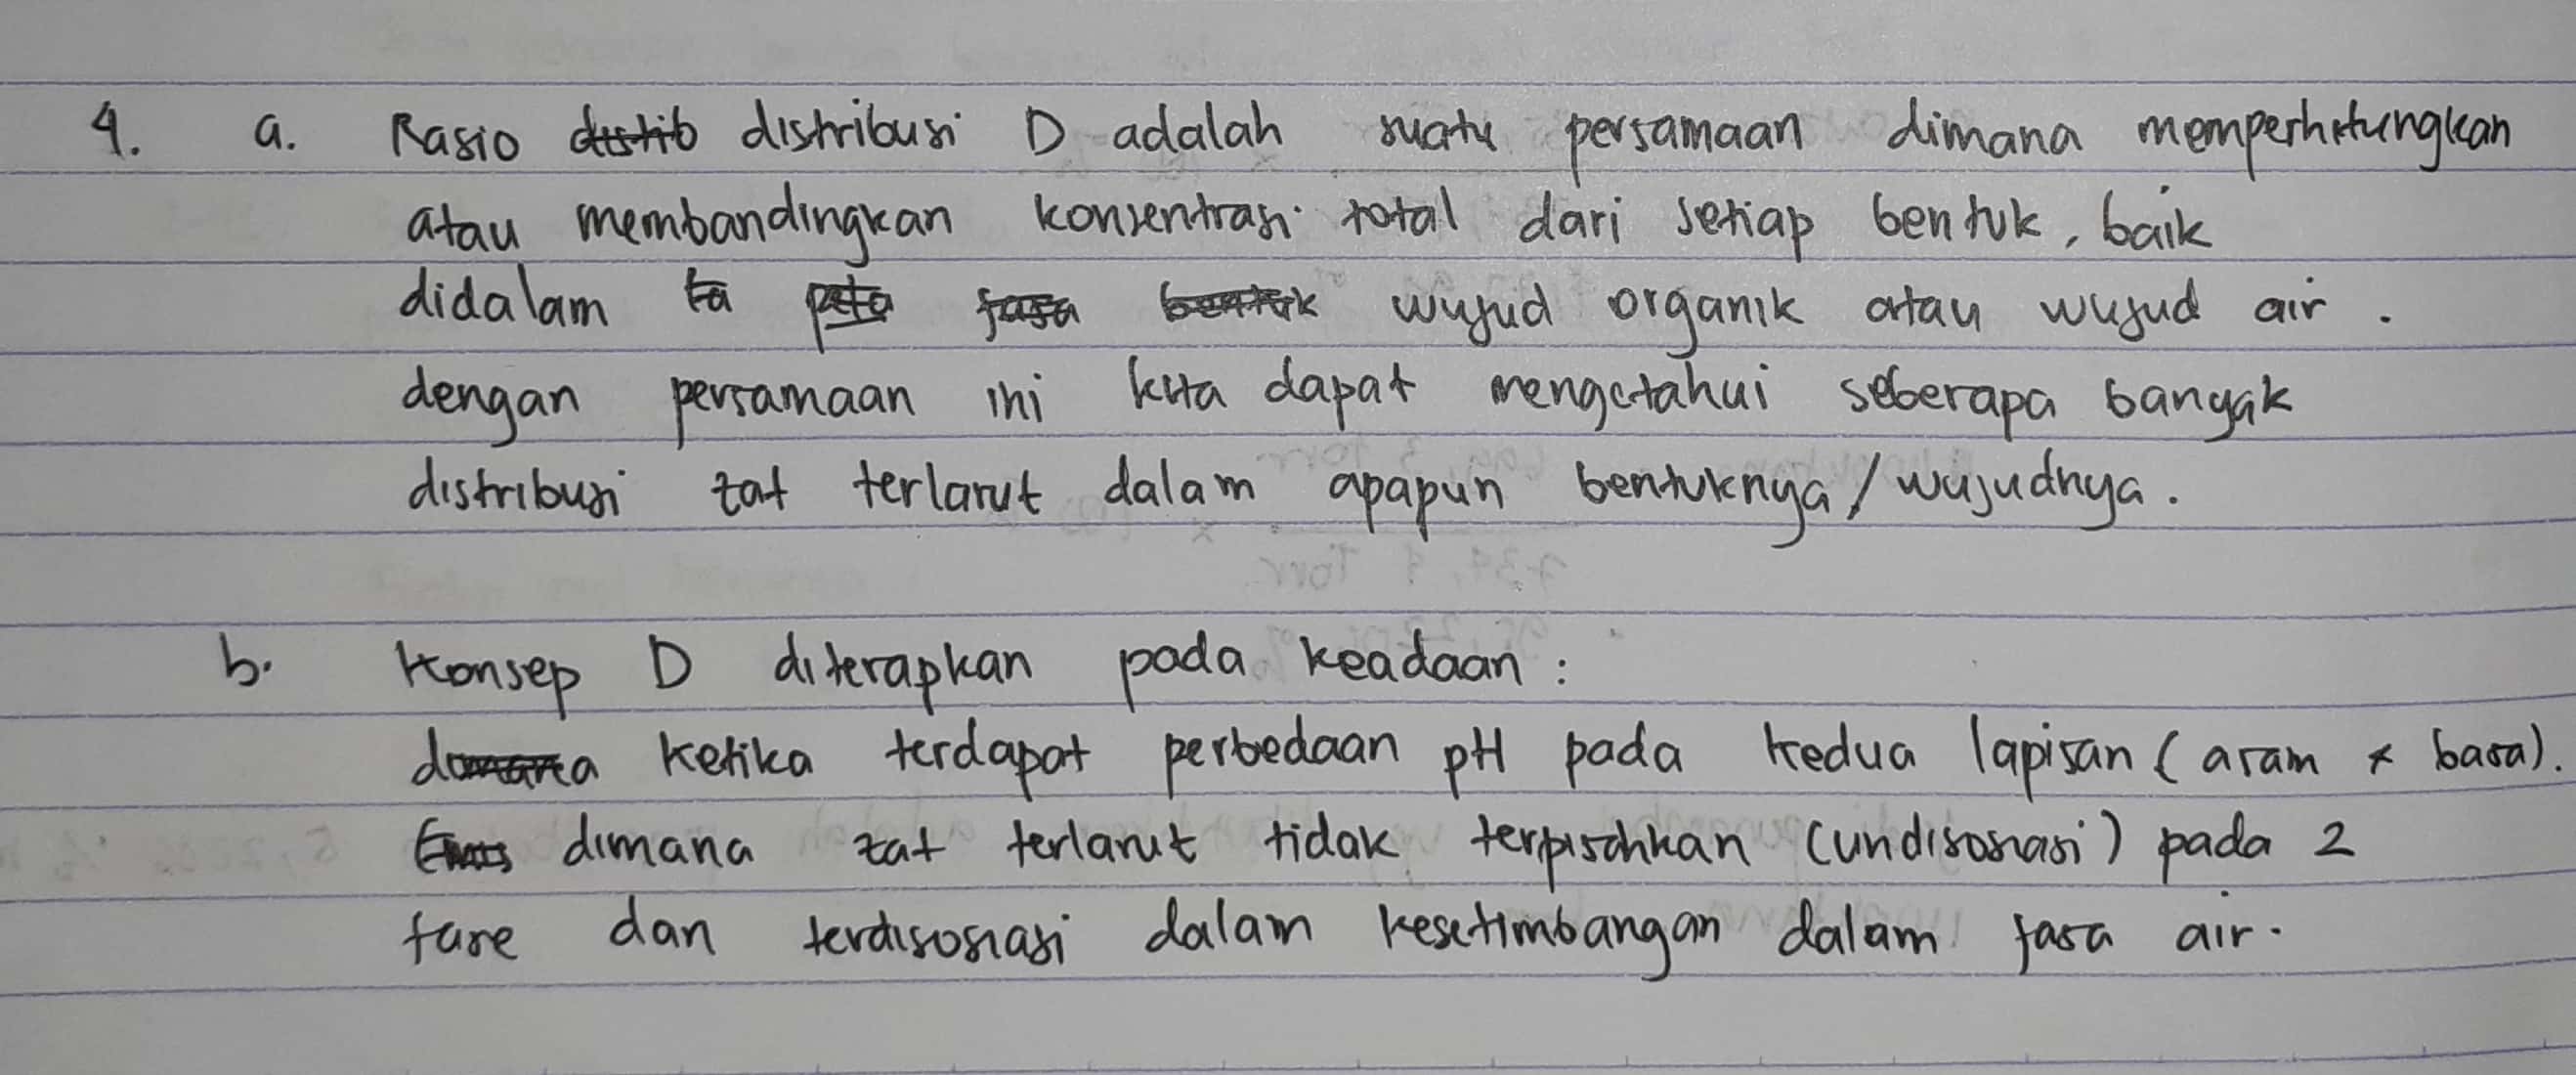 4. a. Rasio distribusi D adalah suatu persamaan dimana memperhitungkan
atau membandingkan konsentrasi total dari setiap bentuk, baik
didalam wujud organik atau wujud air.
dengan persamaan ini kita dapat mengetahui seberapa banyak
distribusi zat terlarut dalam apapun bentuknya / wujudnya.
b. Konsep D diterapkan pada keadaan :
ketika terdapat perbedaan pH pada kedua lapisan (asam & basa).
dimana zat terlarut tidak terpisahkan (undisosiasi) pada 2
fase dan terdisosiasi dalam kesetimbangan dalam fasa air.